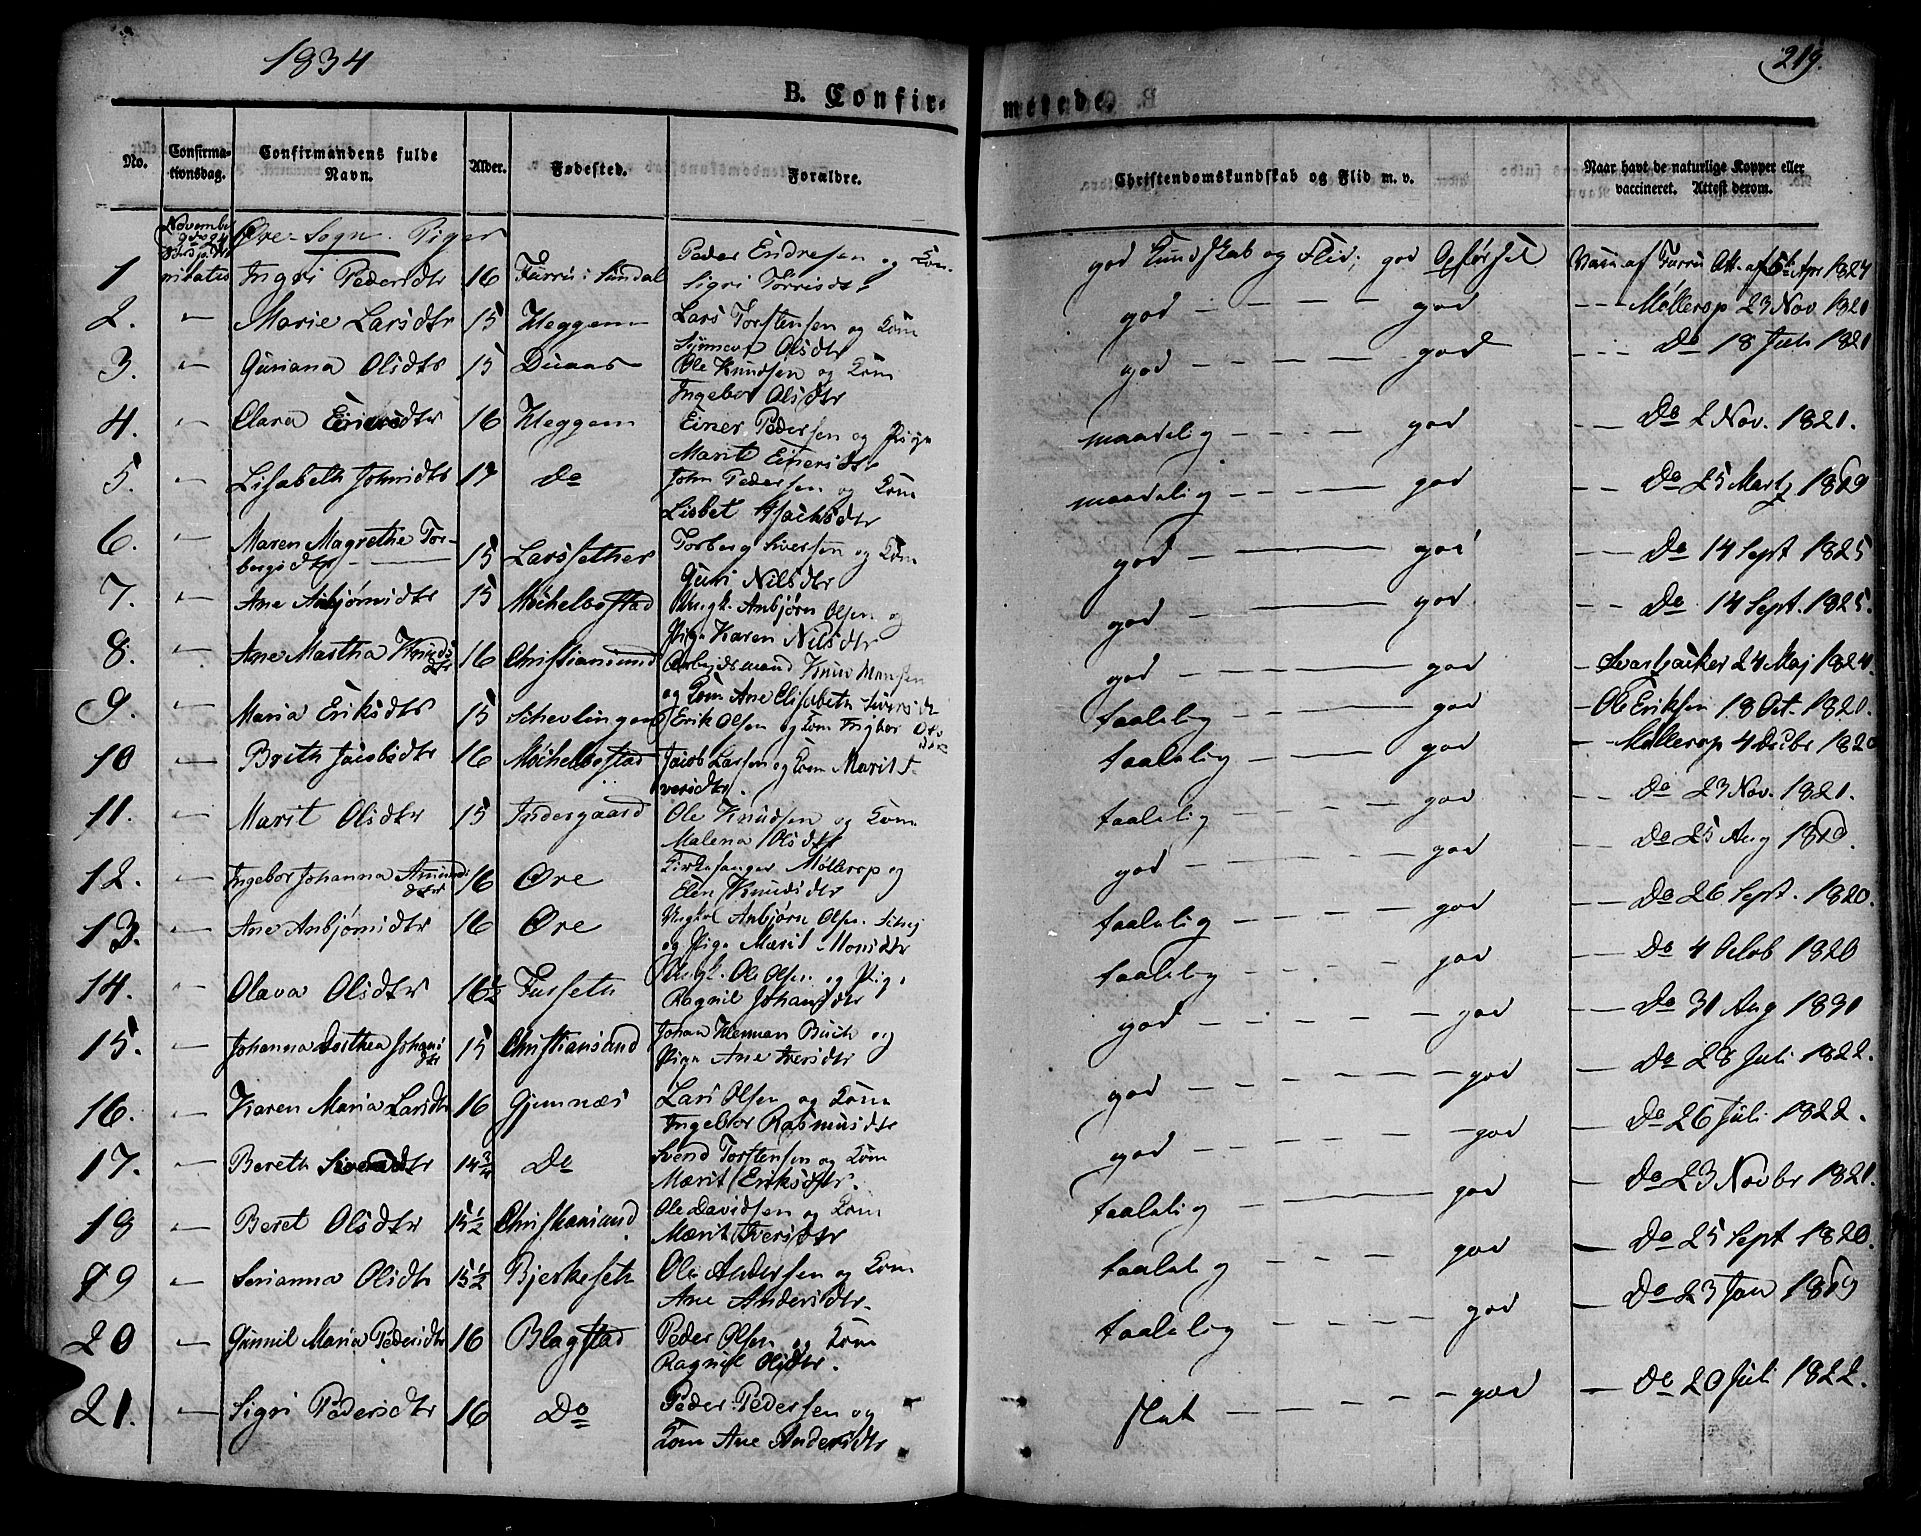 1834
219.
B. Confirmerede.
No.
Confirmationsdag.
Confirmandens fulde Navn.
Alder.
Fødested.
Forældre.
Christendomskundskab og Flid m. v.
Naar havt de naturlige Kopper eller vaccineret. Attest derom.
November
Øre-Sogn. Piger
1 Ingri Pedersdtr 16 Furru i Sundal Peder Endresen og Kon. god Kundskab og Flid; god Opførsel Vacc. af Furru Att. af 5t Apr 1824
Sigri Torrisdtr
2. Marie Larsdtr 15 Kleggem Lars Torstensen og Kone god - - - god - - Møllerop 23 Nov. 1821
Olsdtr
3. Guriana Olsdtr 15 Duaas Ole Knudsen og Kone god - - - god - - Do 18 Juli 1821
Ingebor Olsdtr
4. Clara 16 Kleggem Einer Pedersen og Pige maadelig - - - god - - Do 2 Nov. 1821.
Marit Einersdtr
5. Lisabeth Johnsdtr 17 Do John Pedersen og Kone maadelig - - - god - - Do 25 Martz 1819
Lisbet
6. Maren Magrethe Tor- 15 Larssether Torberg Siversen og Kone god - - - god - - Do 14 Sept 1825
bergsdtr Guri Nilsdtr
7. Ane Anbjørnsdtr 15 Møchelbostad Ungk. Anbjørn Olsen og god - - - god - - Do 14 Sept. 1825.
Pige Karen Nilsdtr
8. Ane Martha Knuds 16 Christiansund Arbejdsmand Knud Monsen god - - - god - Svartbacker 24 Maj 1824.
dtr og Kone Ane Elisabeth Siversdtr
9. Maria Eriksdtr 15 Schevlingen Erik Olsen og Kone Ingbor Ols taalelig - - - god - Ole Eriksen 18 Oct. 1821.
10 Brith Jacobsdtr 16 Møchelbostad Jacob Larsen og Kone Marit I- taalelig - - - god - Møllerop 4 Decbr 1820
versdtr.
11. Marit Olsdtr 15 Indergaard Ole Knudsen og Kone taalelig - - - god - - Do 23 Nov. 1821.
Malena Olsdtr
12. Ingebor Johanna Amunds 16 Øre Kirkesanger Møllerop og god - - - god - - Do 25 Aug 1819.
dtr Elen Knudsdtr
13. Ane Anbjørnsdtr 16 Øre Ungkal Anbjørn Olsen taalelig - - - god - - Do 26 Sept. 1820.
og Pige Marit Monsdtr
14. Olava Olsdtr 16½ Furseth Ungk. Ole Olsen og Pige taalelig - - - god - - Do 4 Octob 1820
Ragnil Johansdtr
15. Johanna Dorthea Johans 15 Christiansund Johan Herman Buch og god - - - god - - Do 31 Aug 1831
dtr Pige Ane Iversdtr
16. Karen Maria Larsdtr 16 Gjemnæs Lars Olsen og Kone god - - - god - - Do 28 Juli 1822.
Ingebor Rasmusdtr
17. Bereth 14¾ Do Svend Torstensen og Kone god - - - god - - Do 26 Juli 1822.
Marit Eriksdtr.
18 Beret Olsdtr 15½ Christiansund Ole Davidsen og Kone taalelig - - - god - - Do 23 Novbr 1821.
Marit Iversdtr
19 Serianna Olsdtr 15½ Bjerkeseth Ole Andersen og Kone taalelig - - - god - - Do 25 Sept 1820.
Ane Andersdtr.
20 Gunnil Maria Pedersdtr 16 Blagstad Peder Olsen og Kone taalelig - - - god - - Do 23 Jan 1819
Ragnil Olsdtr.
21. Sigri Pedersdtr 16 Do Peder Pedersen og slet - - - god - - Do 20 Juli 1822.
Kone Ane Andersdtr